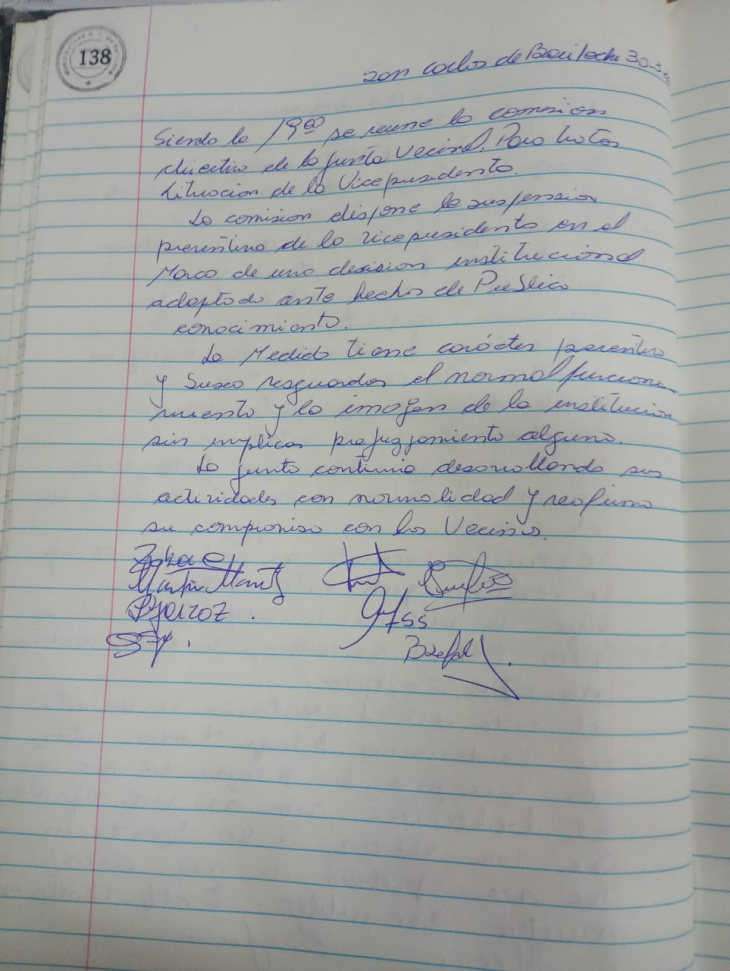 138
San Carlos de Bariloche 30-3
Siendo la 19:00 se reune la comision
directiva de la junta Vecinal. Para tratar
situacion de la Vicepresidenta.
La comision dispone la suspension
preventiva de la vicepresidenta en el
Marco de una decision institucional
adoptada ante hechos de Publico
conocimiento.
La Medida tiene carácter preventivo
y busca resguardar el normal funciona
miento y la imagen de la institucion
sin implicar prejuzgamiento alguno.
La junta continua desarrollando sus
actividades con normalidad y reafirma
su compromiso con los Vecinos.